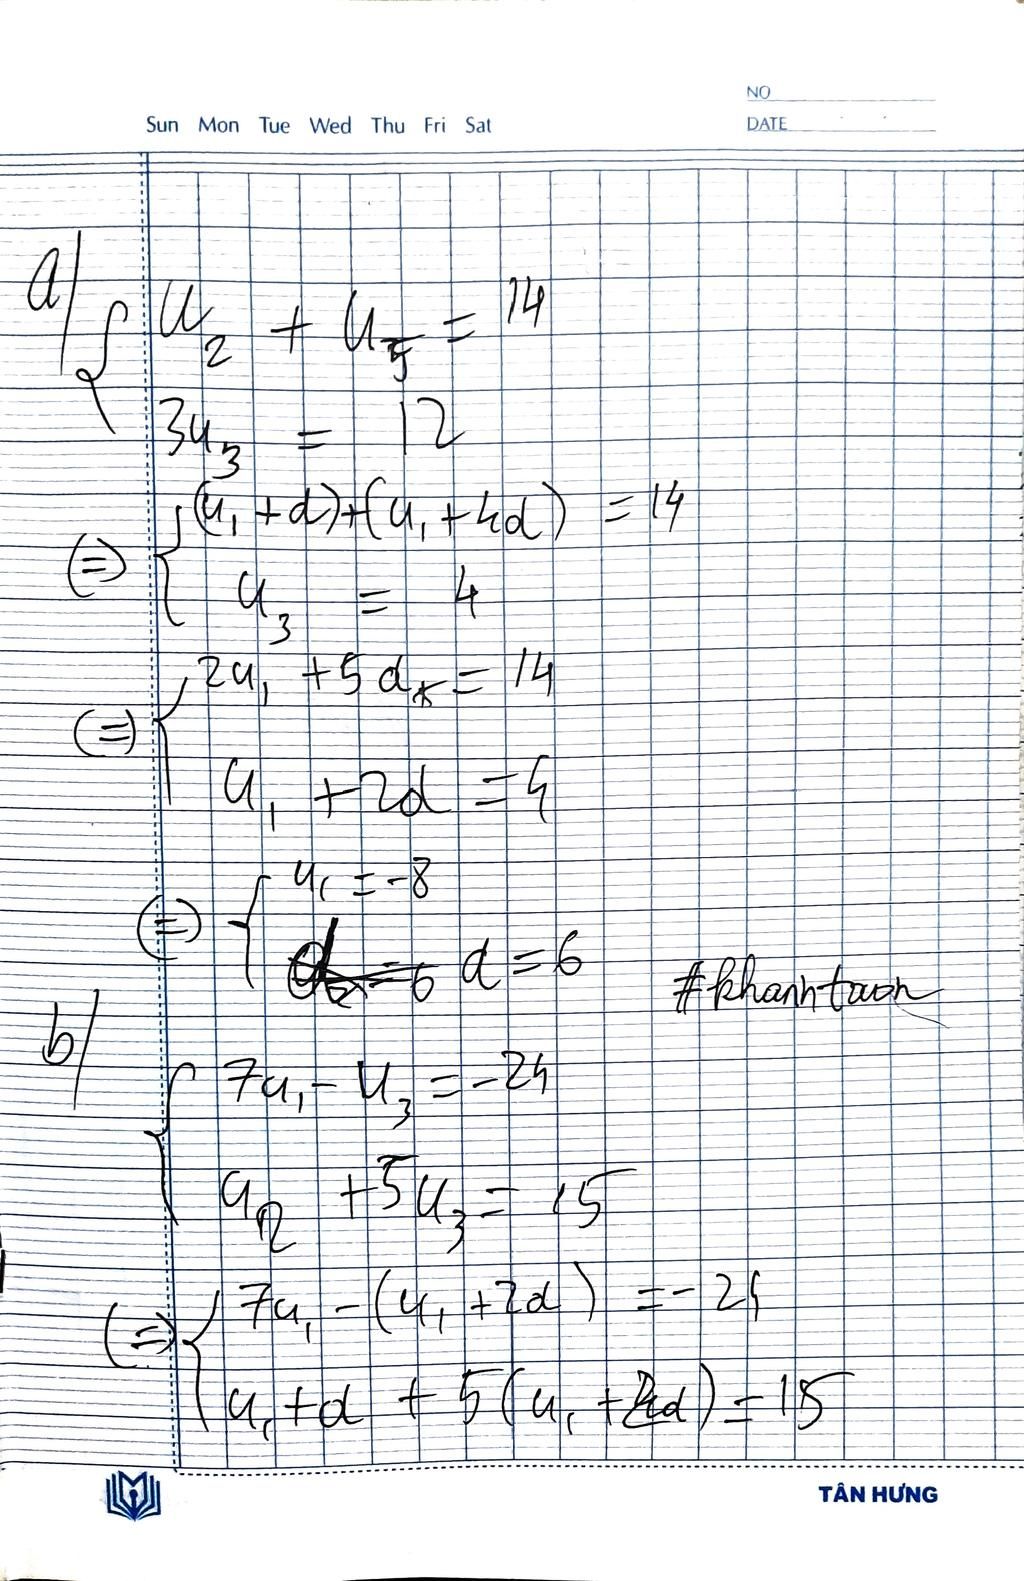 NO
Sun Mon Tue Wed Thu Fri Sat
DATE
a/
{ u₂ + u₅ = 14
3u₃ = 12
(=) { (u₁ + d) + (u₁ + 4d) = 14
u₃ = 4
(=) { 2u₁ + 5d = 14
u₁ + 2d = 4
(=) { u₁ = -8
d = 6
#khanhtwon
b/
{ 7u₁ - u₃ = -24
u₂ + 5u₃ = 15
(=) { 7u₁ - (u₁ + 2d) = -24
u₁ + d + 5(u₁ + 2d) = 15
TÂN HƯNG